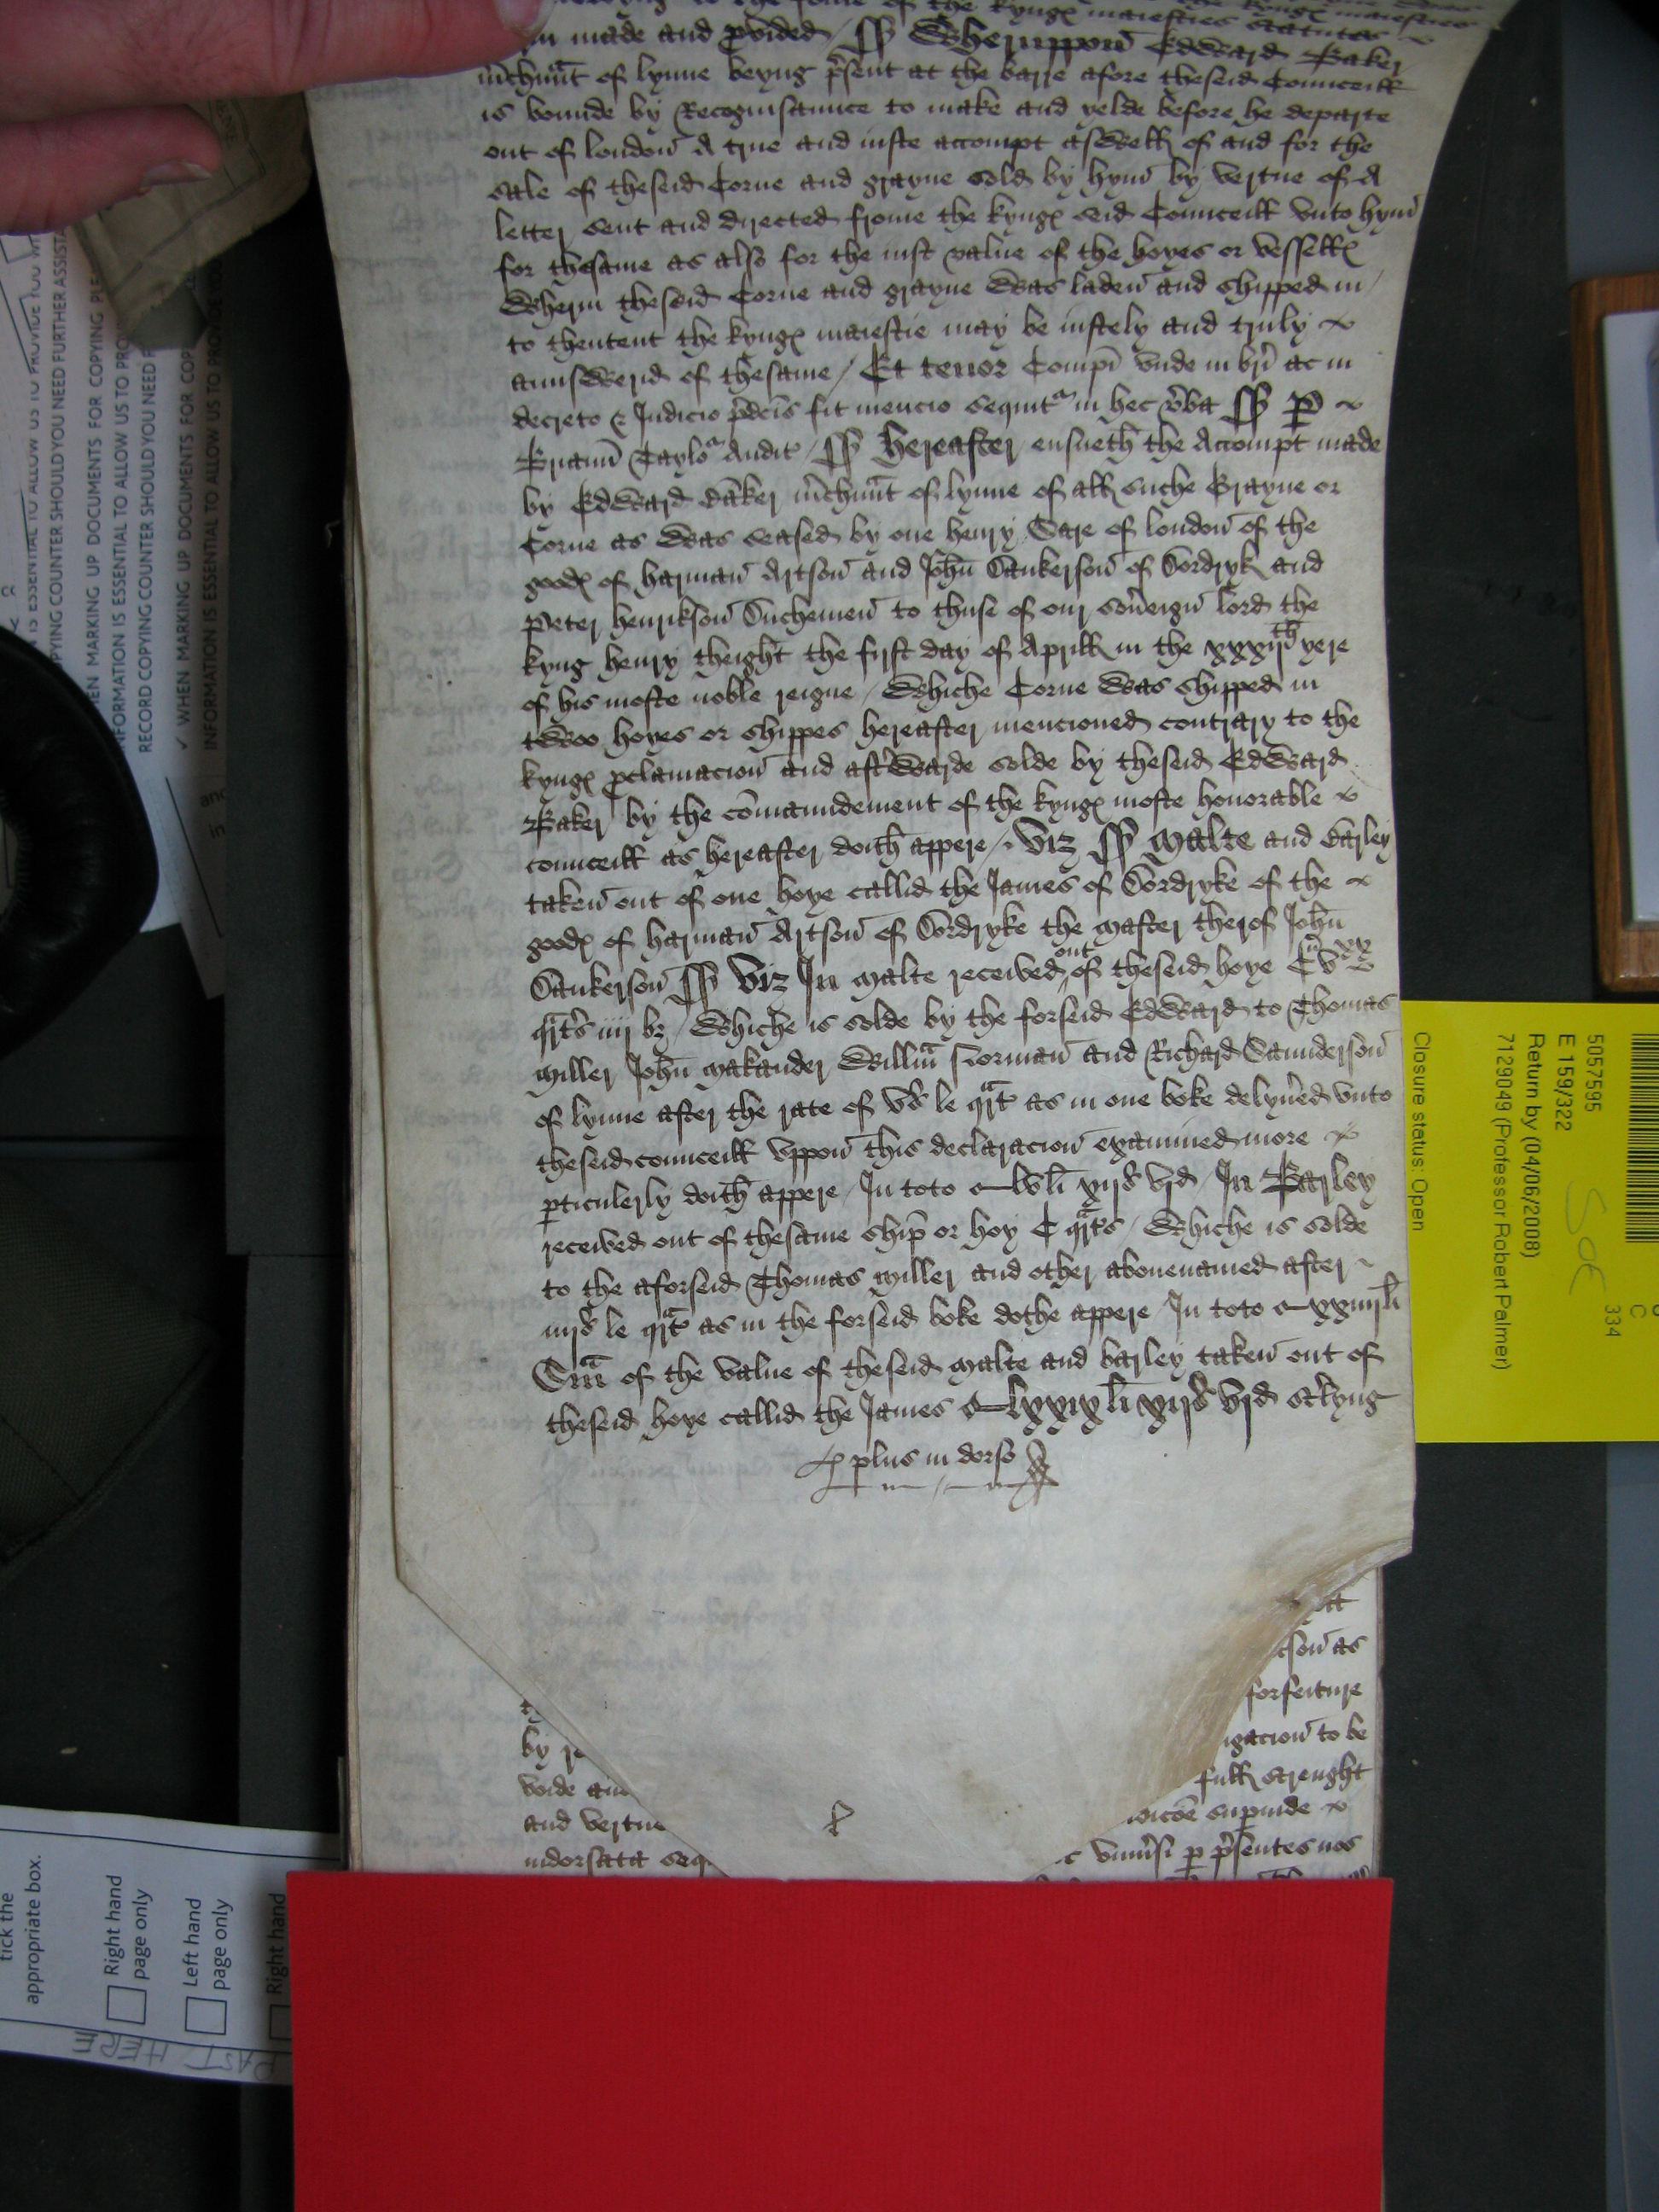 the kynges maiesties
to the fome of the kynges maiesties statutes
made and p̱vided / ſſ Wheruppon Edward Baker
m̄chunt of lynne beyng p̄sent at the barre afore theseid Counceill
is bounde by Recognisaunce to make and yelde before he departe
out of london A true and iuste accompt aswell of and for the
sale of theseid Corne and grayne sold by hym by vertue of A
letter sent and directed frome the kynges seid Counceill vnto hym
for thesame as also for the iust value of the hoyes or vesselles
Wherin theseid Corne and grayne was laden and shipped in /
to thentent the kynges maiestie may be iustely and truly
aunswerid of thesame / Et tenor Compī vnde in br̄i ac in
decreto & Iudicio p̄dc̄is fit mencio sequitr in hec v̄ba ſſ P
Brianū Taylor Audit / ſſ hereafter ensueth the Accompt made
by Edward Baker m̄chunt of lynne of all suche Grayne or
Corne as was seased by one henry Sare of london of the
goodes of harman Artson and John̄ Dankerson of Dordryk and
Peter henrikson Duchemen to thuse of our sov̄eign lord the
kyng henry theight the first day of Aprill in the xxxijth yere
of his moste noble reigne / Whiche Corne was shipped in
twoo hoyes or shippes hereafter mencioned contrary to the
kynges p̱clamacion and aft̄warde solde by theseid Edward
Baker by the com̄aundement of the kynges moste honorable
counceill as hereafter doith appere / viz ſſ Malte and Barley
taken out of one hoye callid the James of Dordryke of the
goodes of harman Artson of Dordryke the Master therof John̄
Dankerson ſſ viz In Malte received out of theseid hoye
qrt̄s iiij bz / Whiche is solde by the forseid Edward to Thomas
Miller John̄ Makander Willm̄ Norman and Richard Saunderson
of lynne after the rate of vs le qrt̄ as in one boke delyv̄ed vnto
theseid counceill vppon this declaracion examined more
p̱ticulerly doith appere / In toto — lvli xijs vjd / In Barley
received out of thesame ship or hoy C qrt̄s / Whiche is solde
to the aforseid Thomas Miller and other abouenamed after
iiijs le qrt̄ as in the forseid boke dothe appere / In toto — xxiiijli
Sm̄a of the value of theseid Malte and barley taken out of
theseid hoye callid the James — lxxixli xijs vjd st̄lyng
plus in dorso
tson as
forfeiture
igacion to be
by re
full strenght
voide and
and vertue
indorsata seq
p̱ p̄sentes nos
5057595
E 159/322
Return by (04/06/2008)
7129049 (Professor Robert Palmer)
Closure status: Open
C
334
IS ESSENTIAL TO ALLOW US TO PROVIDE YOU W
PYING COUNTER SHOULD YOU NEED FURTHER ASSISTA
WHEN MARKING UP DOCUMENTS FOR COPYING PLE
INFORMATION IS ESSENTIAL TO ALLOW US TO PROV
RECORD COPYING COUNTER SHOULD YOU NEED F
✓ WHEN MARKING UP DOCUMENTS FOR COP
INFORMATION IS ESSENTIAL TO ALLOW US TO PROVIDE YO
tick the
appropriate box.
Right hand
page only
Left hand
page only
Right hand
PAST HERE